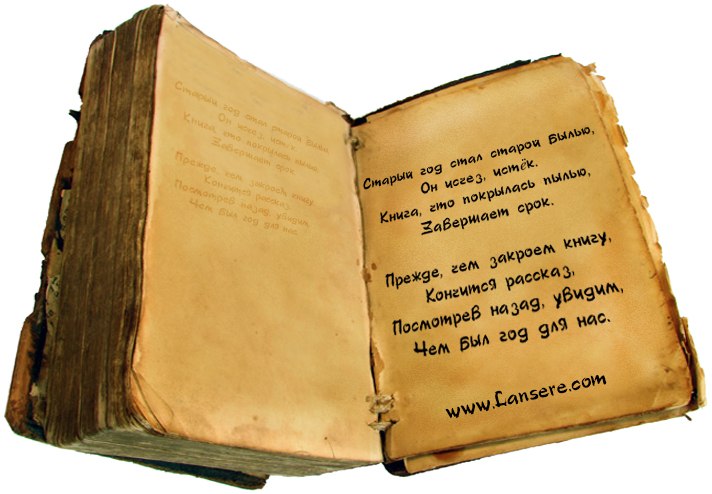 Старый год стал старой былью,
Он исчез, истёк.
Книга, что покрылась пылью,
Завершает срок.
Прежде, чем закроем книгу,
Кончится рассказ
Посмотрев назад, увидим
Чем был год для нас.
Старый год стал старой былью,
Он исчез, истёк.
Книга, что покрылась пылью,
Завершает срок.
Прежде, чем закроем книгу,
Кончится рассказ,
Посмотрев назад, увидим,
Чем был год для нас.
www.Lansere.com